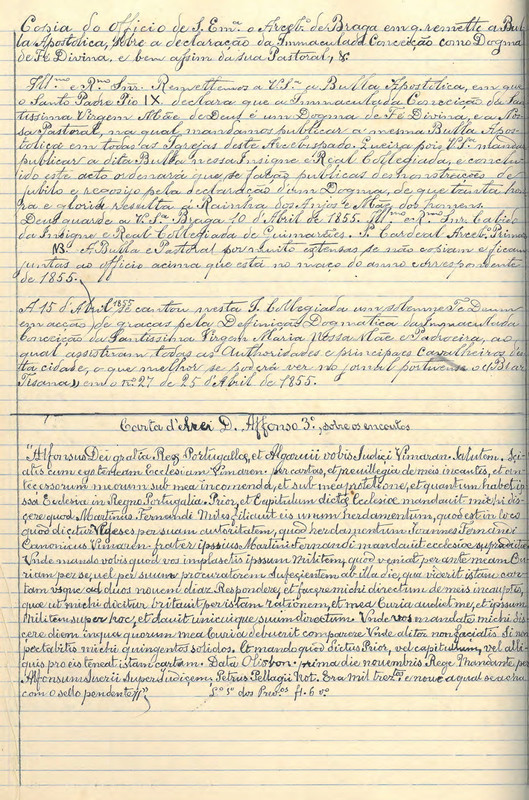 Copia do Officio de S. Em.ª o Arceb.º de Braga em q. remette a Bul-
la Apostolica, sobre a declaração da Immaculada Conceição como Dogma
de Fé Divina, e bem assim da sua Pastoral, &
Ill.mo e R.mo Snr. Remettemos a V. S.ª a Bulla Apostolica, em que
o Santo Padre Pio IX. declara que a Immaculada Conceição da San-
tissima Virgem Mãe de Deus é um Dogma de Fé Divina, e a Nos-
sa Pastoral, na qual mandamos publicar a mesma Bulla Apos-
tolica em todas as Igrejas deste Arcebispado. Queira pois V. S.ª mandar
publicar a dita Bulla nessa Insigne e Real Collegiada, e conclu-
ido este acto ordenará que se fação publicas demonstrações de
jubilo e regosijo pela declaração d'um Dogma, de que tanta hon-
ra e gloria resulta á Rainha dos Anjos e Mãe dos homens.
Deus guarde a V. S.ª Braga 10 de Abril de 1855. Ill.mo e R.mo Snr. Cabido
da Insigne e Real Collegiada de Guimarães. P. Cardeal Arceb.º Primaz
NB. A Bulla e Pastoral por muito extensas se não copiam e ficam
juntas ao officio acima que está no maço do anno correspondente
de 1855.
A 15 d'Abril 1855 se cantou nesta I. Collegiada um solemne Te Deum
em acção de graças pela Definição Dogmatica da Immaculada
Conceição da Santissima Virgem Maria Nossa Mãe e Padroeira, ao
qual assistiram todas as Authoridades e principaes Cavalheiros des-
ta cidade, o que melhor se poderá ver no jornal portuense o (Braz
Tisana) em o n.º 27 de 25 de Abril de 1855.
Carta d'Elrei D. Affonso 3.º, sobre os encoutos
"Alfonsus Dei gratia Rex Portugalliæ, et Algarvii vobis Judici Vimaran. Salutem. Sci-
atis cum ego teneam Ecclesiam Vimaren. per cartas, et previllegia de meis incautis, et an-
tecessorum meorum sub mea incomenda, et sub mea potitione, et quantum habet ip-
ssa Ecclesia in Regno Portugalia. Prior, et Capitulum dictæ Ecclesiæ mandavit michi di-
cere quod Martinus Fernandi Miles filiavit eis unum herdamentum, quod est in loco
quod dicitur per suam autoritatem, quod herdamentum Joannes Fernandi
Canonicus Vimaren. frater ipssius Martini Fernandi mandavit ecclesiæ supradictæ
Unde mando vobis quod vos implacetis ipssum Militem, quod veniat per ante meam Cu-
riam per se, vel per suum procuratorem sufecientem at illa die, qua viderit istam car-
tam usque ad duos novem diaz. Respondere, et facere michi directum de meis incautis,
quæ ut michi dicitur britavit per istam rationem, et mea Curia audiet me, et ipssum
Militem super hoc, et davit unicuique suum directum. Unde vos mandate michi di-
cere diem in qua quorum mea Curia debuerit comparere. Unde aliter non faciatis. Si non
pectabitis michi quingentos solidos. Et mando quod dictus Prior, vel capitulum, vel alli-
quis pro eis teneat istam cartam. Data Olixbon. prima die novembris Rege Mandante, per
Alfonsum Suerii Super Judicem, Petrus Pellagii Not. Era mil trez.tos e nove a qual se acha
com o sello pendente." L.º 5º dos Priv.os fl. 6 vº